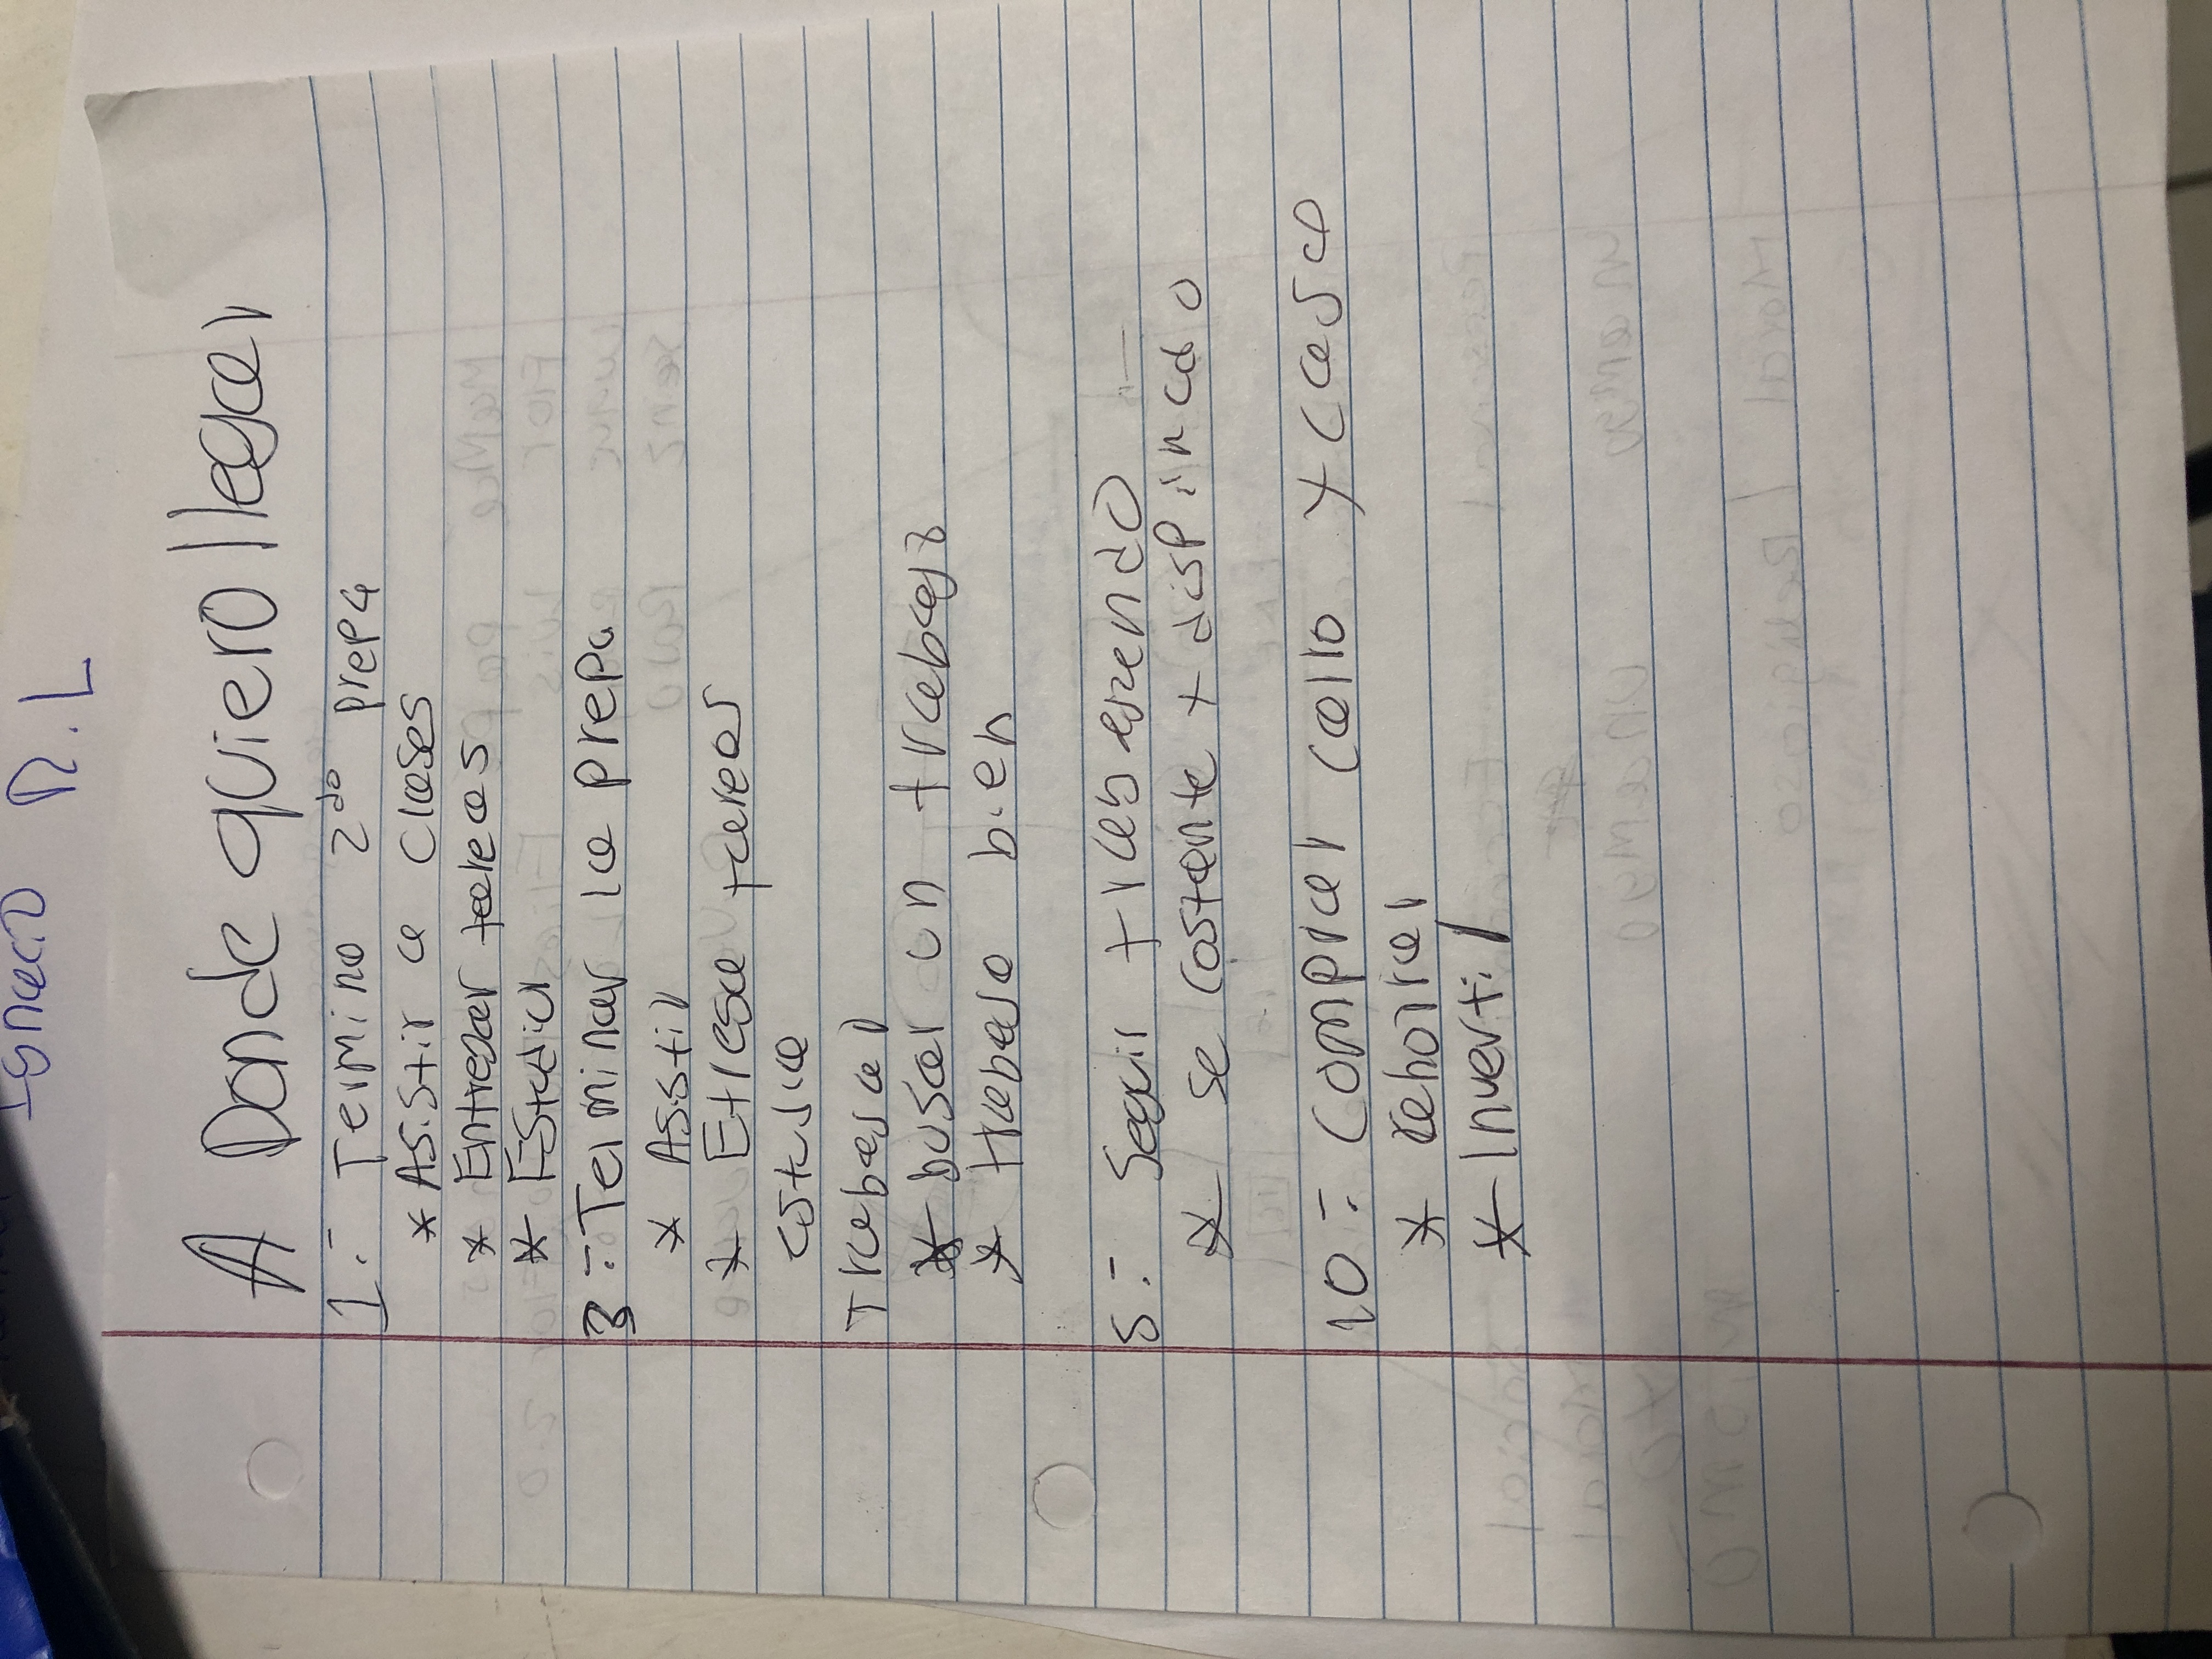 A Donde quiero llegar
1.- Termino 2do prepa
* Asistir a clases
* Entregar tareas
* Estudiar
3.- Terminar la prepa
* Asistir
* Etregar tareas
estudia
Trabajar
* busar un trabajo
* trabajo bien
5.- Seguir trabajando
* se costante y disp
10.- Comprar carro y casa
* ahorrar
* Invertir